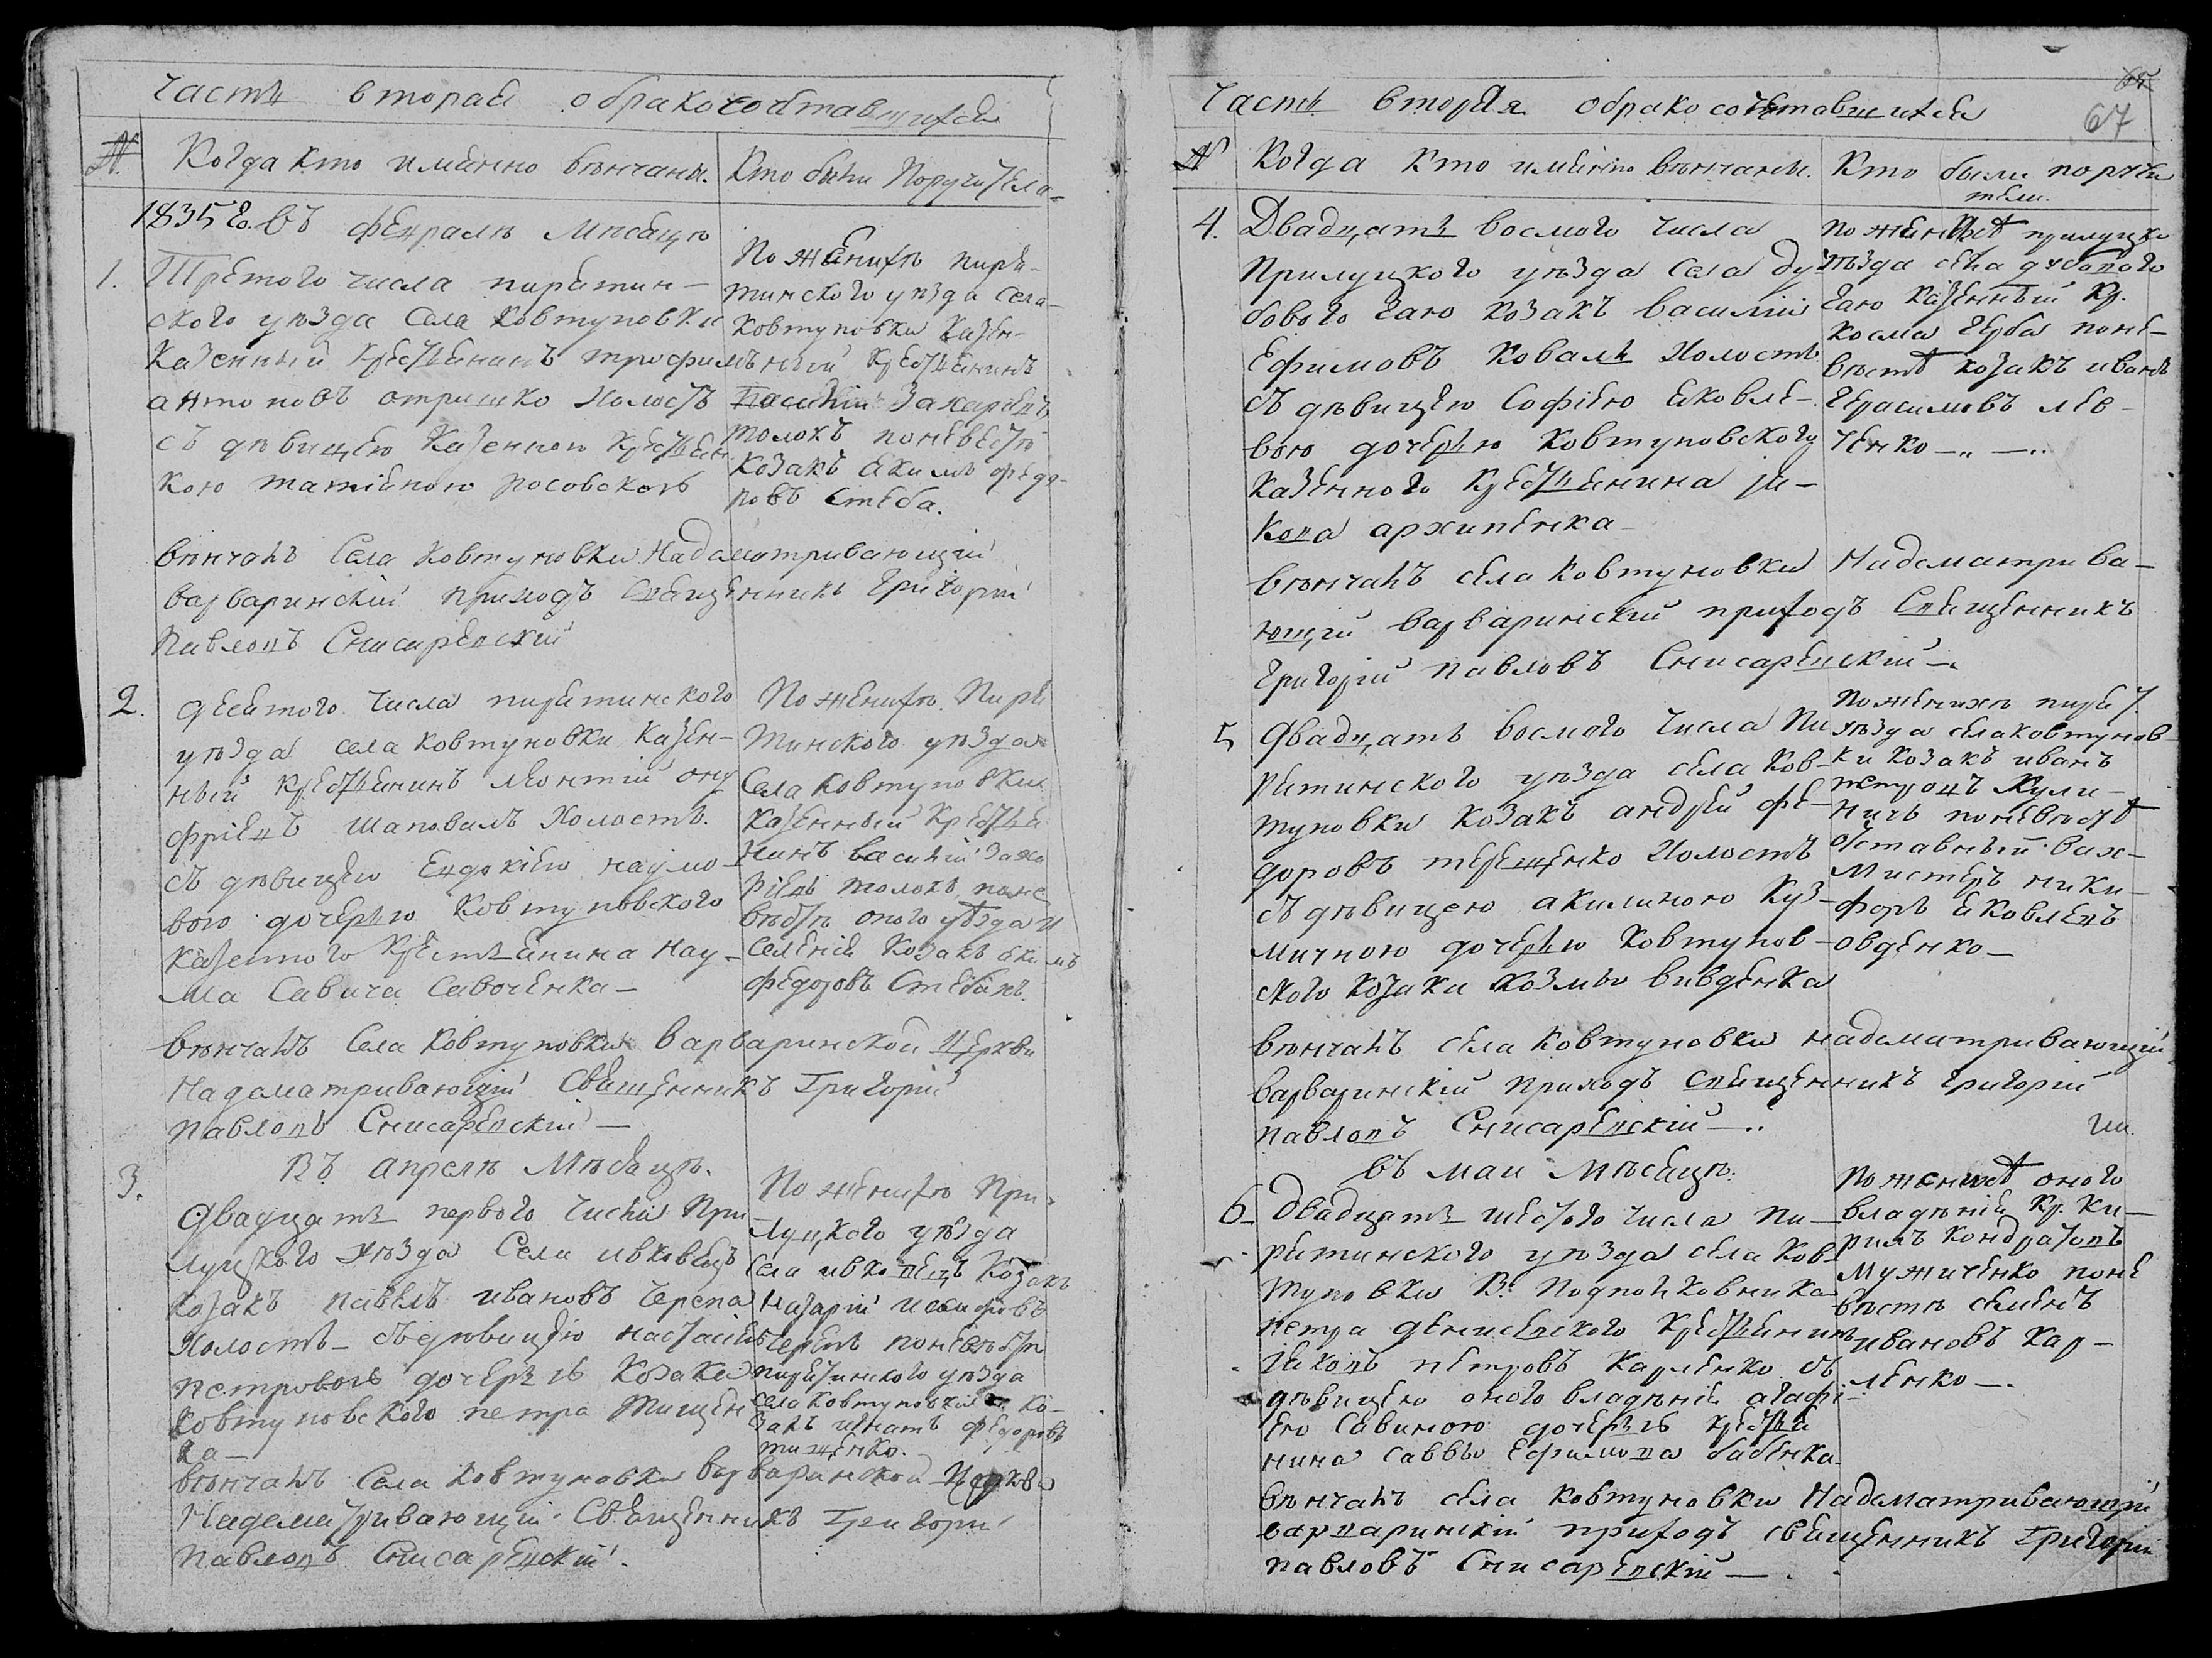 Часть вторая о бракосочетавшихся
№. Когда кто имянно венчаны. Кто были Поручители
1835 го. Въ февралѣ Мѣсяцѣ
1. Третого числа пирятин-
ского уѣзда села Ковтуновки
Казенный крестьянинъ трофимъ
антоновъ отришко Холостъ
съ дѣвицею Казенною крестьян
кою татіяною росовскою
По женихѣ пиря-
тинского уѣзда села
Ковтуновки казен-
ный крестьянинъ
Василій Захаріевъ
толокъ по невестѣ
козакъ Якимъ федо-
ровъ Стеба.
вѣнчалъ Села Ковтуновки Надсматривающій
варваринскій приходъ Священникъ Григорій
Павловъ Снисаревскій
2. десятого числа пирятинского
уѣзда села Ковтуновки Казен-
ный крестьянинъ леонтій ону
фріевъ шаповалъ Холостъ.
съ дѣвицею Евдокіею наумо-
вою дочерью Ковтуновского
казенного крестьянина Нау-
ма Савича Савоченка —
По женихѣ. Пиря
тинского уѣзда
села Ковтуновки
Казенный Крестья
нинъ василій Заха
ріевъ толокъ поне
вѣстѣ оного уѣзда и
селенія Козакъ Якимъ
федоровъ Стебанъ.
вѣнчалъ Села Ковтуновки варваринской Церкви
Надсматривающій Священникъ Григорій
Павловъ Снисаревскій —
Въ апрелѣ Мѣсяцѣ.
3. двадцать первого числа При
луцкого уѣзда Села ивковецъ
козакъ павелъ ивановъ черепа
Холостъ — съ дѣвицею настасіею
петровою дочерью козака
ковтуновского петра Тищен
ка —
По женихѣ При-
луцкого уѣзда
села ивковецъ Козакъ
Назарій
Черепа по невѣстѣ
пирятинского уѣзда
села Ковтуновки Ко-
закъ игнатъ федоровъ
тищенко.
вѣнчалъ Села Ковтуновки варваринской Церкви
Надсматривающій Священникъ Григорій
Павловъ Снисаревскій.
67
Часть вторая о бракосочетавшихся
№ Когда кто имянно вѣнчаны. Кто были поручи
тели.
4. Двадцать восмого числа
Прилуцкого уѣзда села ду
бового гаю козакъ василій
Ефимовъ Коваль Холостъ
съ дѣвицею Софіею яковле-
вою дочерью Ковтуновского
казенного крестьянина Я-
кова архипенка —
По женихѣ прилуцко
уѣзда села дубового
гаю казенный кр.
косма герба по не-
вѣстѣ козакъ иванъ
герасимовъ лев-
ченко —
вѣнчалъ села Ковтуновки Надсматрива-
ющій варваринскій приходъ Священникъ
Григорій павловъ Снисаревскій —
5 Двадцать восмого числа Пи
рятинского уѣзда села Ков-
туновки козакъ андрей фе-
доровъ терещенко Холостъ
съ дѣвицею акилиною Куз-
мичною дочерью Ковтунов-
ского козака Козмы вивденка
По женихѣ пиря
уѣзда села ковтунов
ки козакъ иванъ
петровъ Кули-
ничъ по невѣстѣ
отставный вах-
мистеръ ники-
форъ яковлевъ
овденко —
вѣнчалъ села Ковтуновки надсматривающій
варваринскій приходъ священникъ григорій
павловъ Снисаревскій —
въ маи мѣсяцѣ:
6 двадцать шестого числа пи-
рятинского уѣзда села Ков-
туновки В. Подполковника
петра денисевского крестьянинъ
яковъ петровъ Карпенко съ
дѣвицею оного владѣнія агафі-
ею савиною дочерью крестья
нина саввы Ефимова бабенка
По женихѣ оного
владѣнія кр. Ки-
рилъ Кондратовъ
Мужиченко поне
вѣстѣ семенъ
ивановъ Кар-
пенко —
вѣнчалъ села Ковтуновки Надсматривающій
варваринскій приходъ священникъ Григорій
павловъ Снисаревскій —